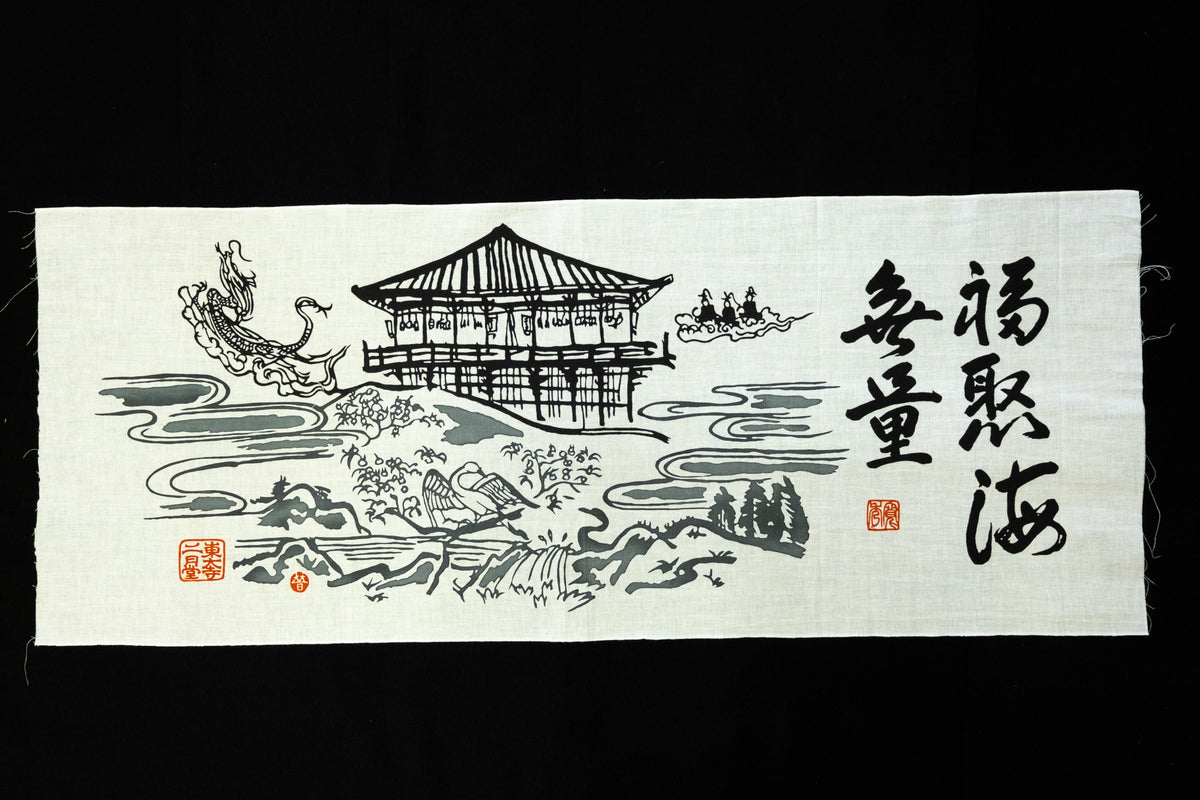 福聚海
無量
東大寺
二月堂